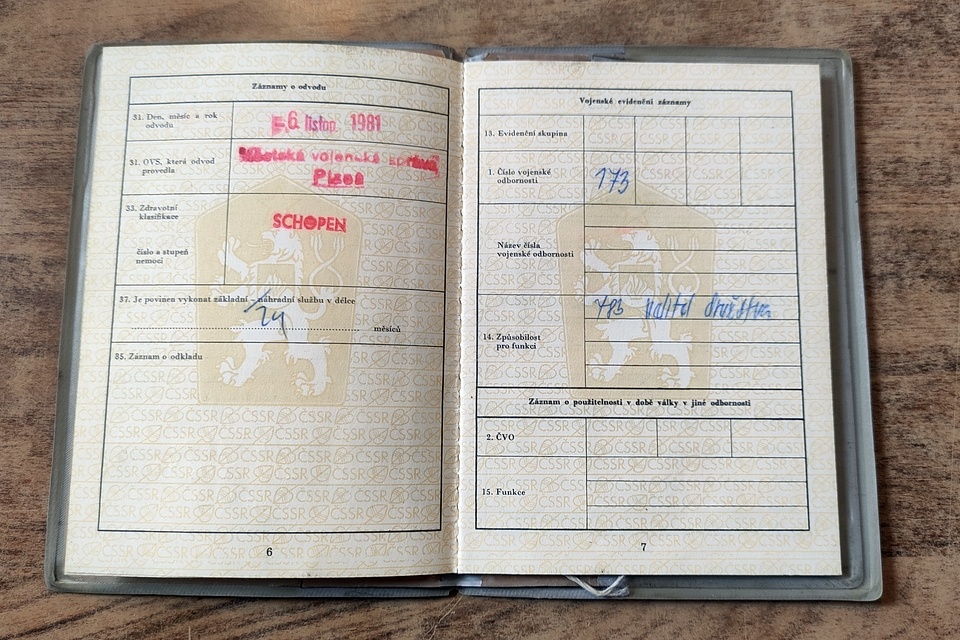 Záznamy o odvodu
31. Den, měsíc a rok odvodu
-6. listop. 1981
31. OVS, která odvod provedla
vojenská správa
Plzeň
33. Zdravotní klasifikace
SCHOPEN
číslo a stupeň nemoci
37. Je povinen vykonat základní - náhradní službu v délce
24
měsíců
35. Záznam o odkladu
6
Vojenské evidenční záznamy
13. Evidenční skupina
1. Číslo vojenské odbornosti
173
Název čísla vojenské odbornosti
velitel družstva
14. Způsobilost pro funkci
Záznam o použitelnosti v době války v jiné odbornosti
2. ČVO
15. Funkce
7
ČSSR